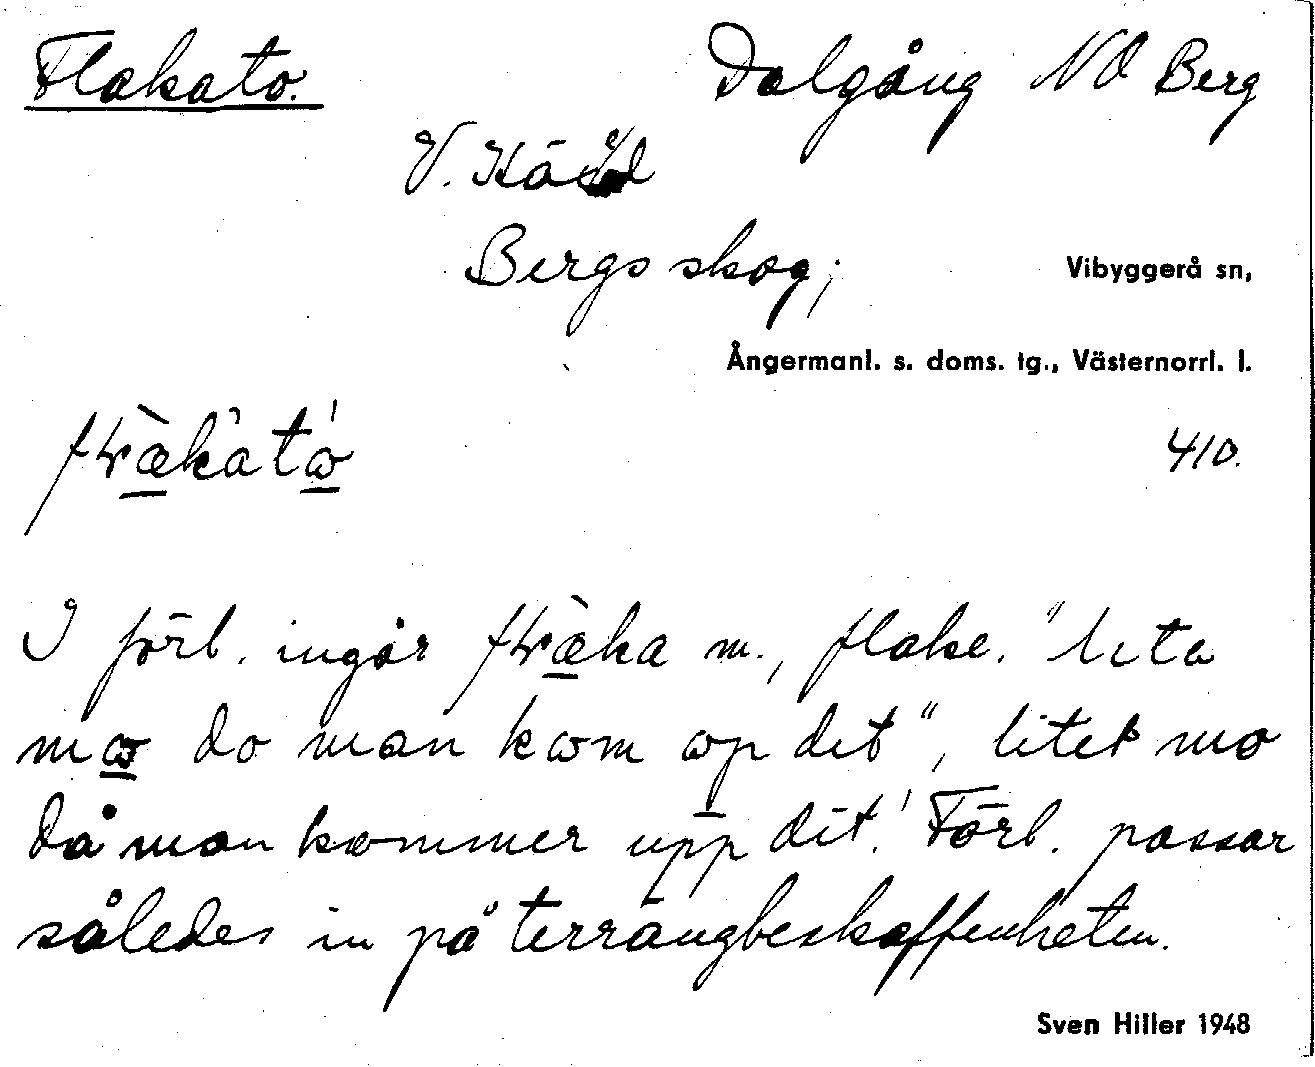 Flakato.
Dalgång NO Berg
V. Käxed
Bergs skog;
Vibyggerå sn,
Ångermanl. s. doms. tg., Västernorrl. l.
410.
I förl. ingår m., flake. "lita
mω do man kωm ωp dit", litet mo
då man kommer upp dit.' Förl. passar
således in på terrängbeskaffenheten.
Sven Hiller 1948